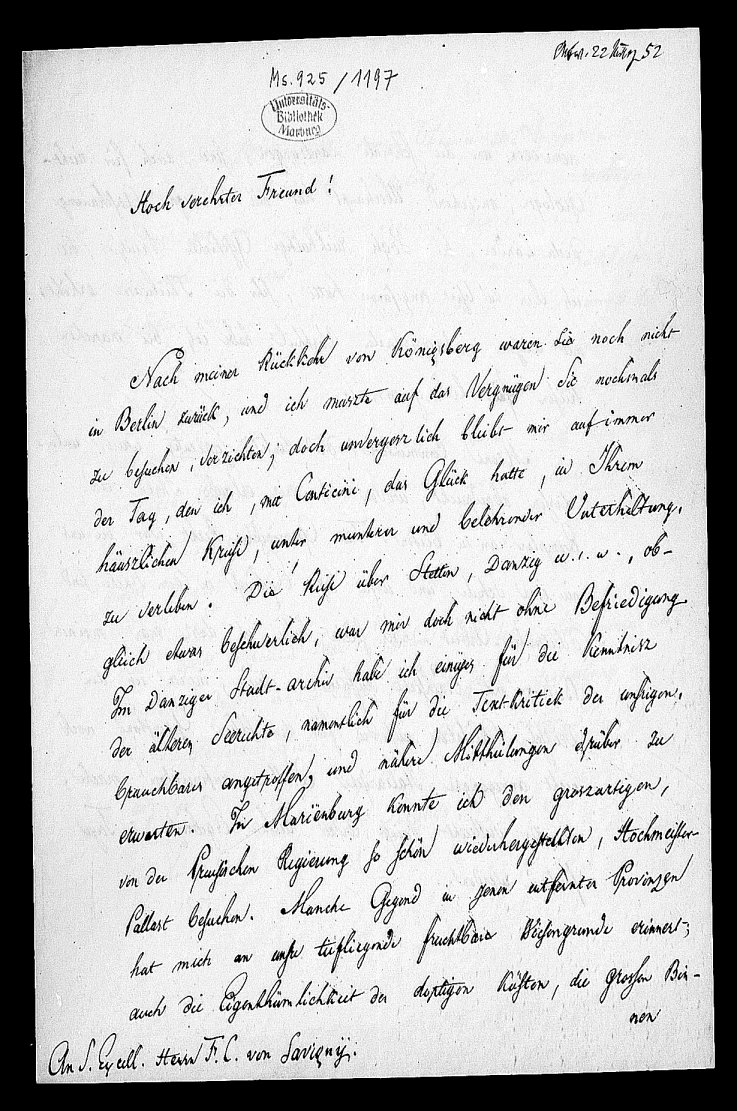 22 März 52
Ms. 925 / 1197
Universitäts-
Bibliothek
Marburg
Hoch verehrter Freund!
Nach meiner Rückkehr von Königsberg waren Sie noch nicht
in Berlin zurück, und ich muszte auf das Vergnügen Sie nochmals
zu besuchen, verzichten; doch unvergeszlich bleibt mir auf immer
der Tag, den ich, mit Conticini, das Glück hatte, in Ihrem
häuszlichen Kreise, unter munterer und belehrender Unterhaltung,
zu verleben. Die Reise über Stettin, Danzig u. s. w., ob-
gleich etwas beschwerlich, war mir doch nicht ohne Befriedigung
Im Danziger Stadt-archiv habe ich einiges für die Kenntnisz
der älteren Seerechte, namentlich für die Text-kritiek der unsrigen,
brauchbares angetroffen, und nähere Mittheilungen drüber zu
erwarten. In Mariënburg konnte ich den groszartigen,
von der Preusischen Regierung so schön wiederhergestellten, Hochmeister-
Pallast besuchen. Manche Gegend in jenen entfernten Provinzen
hat mich an unsre tiefliegende fruchtbare erinnert;
auch die Eigenthümlichkeit der dortigen Küsten, die grossen Bin-
nen
An S. Excell. Herrn F. C. von Savigny.